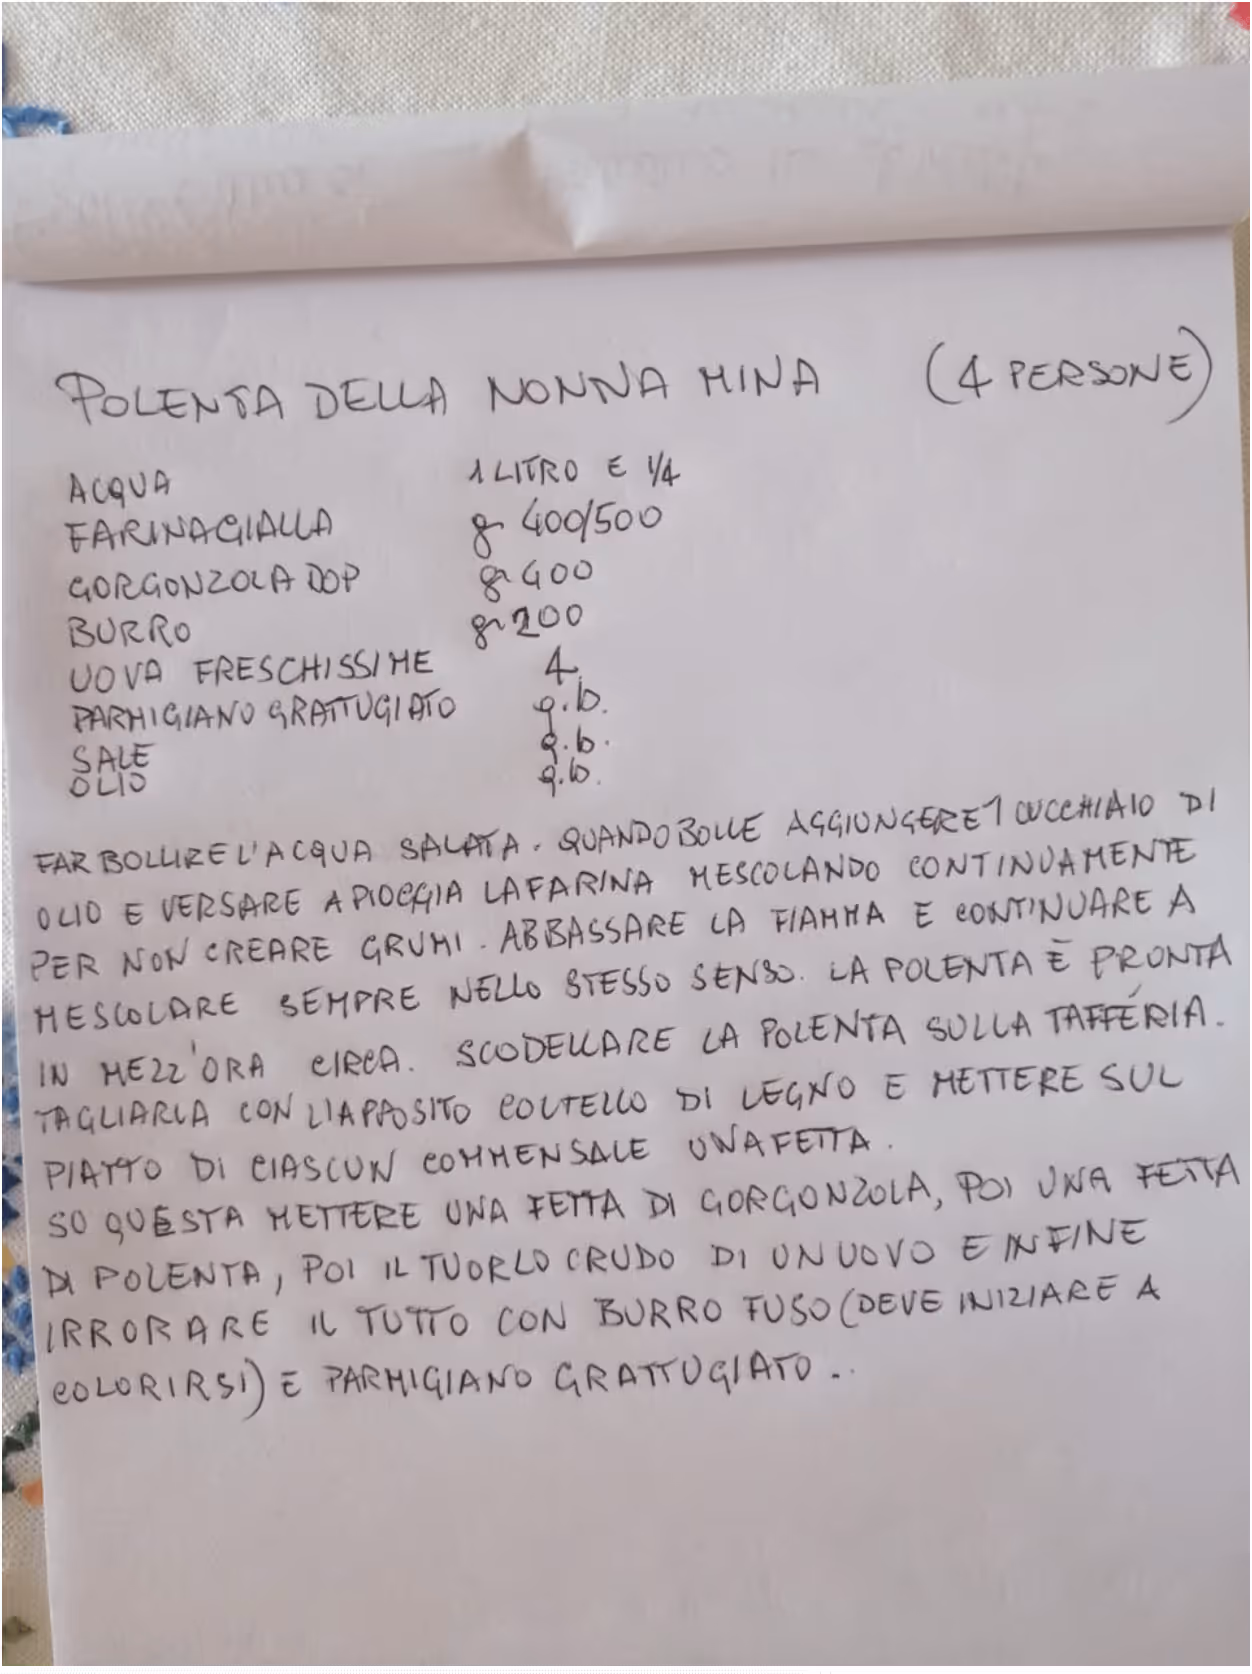 POLENTA DELLA NONNA MINA (4 PERSONE)
ACQUA 1 LITRO E 1/4
FARINA GIALLA gr 400/500
GORGONZOLA DOP gr 400
BURRO gr 200
UOVA FRESCHISSIME 4
PARMIGIANO GRATTUGIATO q.b.
SALE q.b.
OLIO q.b.
FAR BOLLIRE L'ACQUA SALATA. QUANDO BOLLE AGGIUNGERE 1 CUCCHIAIO DI
OLIO E VERSARE A PIOGGIA LA FARINA MESCOLANDO CONTINUAMENTE
PER NON CREARE GRUMI. ABBASSARE LA FIAMMA E CONTINUARE A
MESCOLARE SEMPRE NELLO STESSO SENSO. LA POLENTA È PRONTA
IN MEZZ'ORA CIRCA. SCODELLARE LA POLENTA SULLA TAFFÉRIA.
TAGLIARLA CON L'APPOSITO COLTELLO DI LEGNO E METTERE SUL
PIATTO DI CIASCUN COMMENSALE UNA FETTA.
SU QUESTA METTERE UNA FETTA DI GORGONZOLA, POI UNA FETTA
DI POLENTA, POI IL TUORLO CRUDO DI UN UOVO E INFINE
IRRORARE IL TUTTO CON BURRO FUSO (DEVE INIZIARE A
COLORIRSI) E PARMIGIANO GRATTUGIATO..